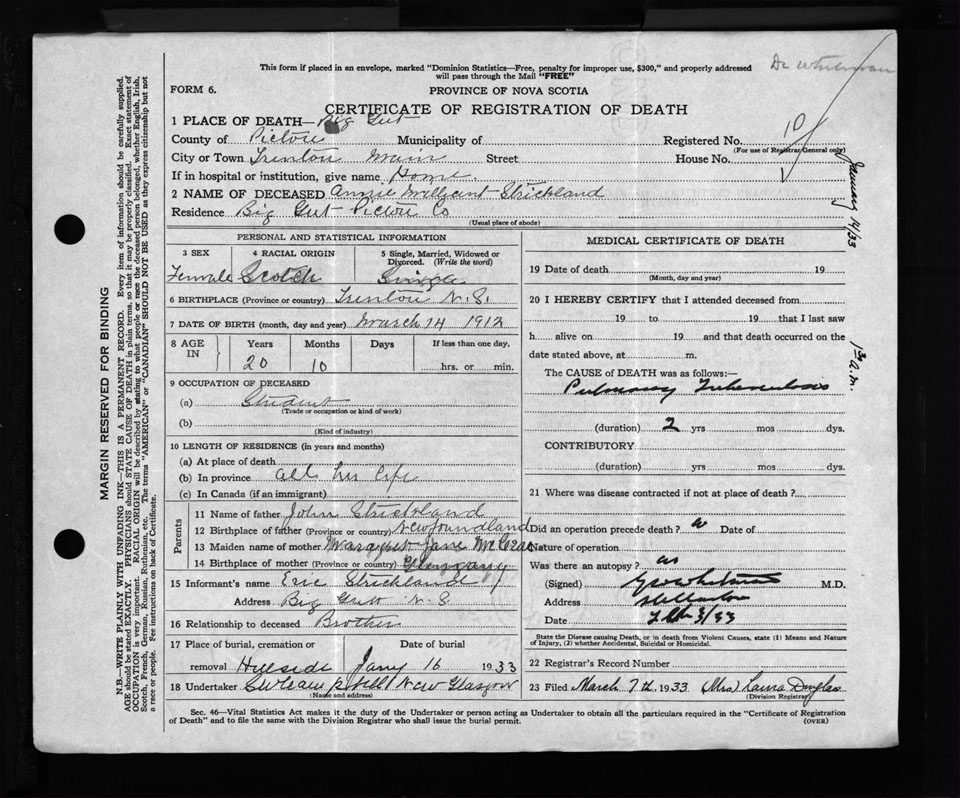 This form if placed in an envelope, marked "Dominion Statistics—Free, penalty for improper use, $300," and properly addressed
will pass through the Mail "FREE"
FORM 6.
PROVINCE OF NOVA SCOTIA
CERTIFICATE OF REGISTRATION OF DEATH
1 PLACE OF DEATH— Big Gut
County of Pictou Municipality of Registered No. 10
(For use of Registrar General only)
City or Town Trenton Main Street House No.
If in hospital or institution, give name Home.
2 NAME OF DECEASED Annie Millicent Strickland
Residence Big Gut Pictou Co
(Usual place of abode)
January 14/33
PERSONAL AND STATISTICAL INFORMATION
3 SEX 4 RACIAL ORIGIN 5 Single, Married, Widowed or
Divorced. (Write the word)
Female Scotch Single
6 BIRTHPLACE (Province or country) Trenton N.S.
7 DATE OF BIRTH (month, day and year) March 14 1912
8 AGE IN Years Months Days If less than one day,
20 10 hrs. or min.
9 OCCUPATION OF DECEASED
(a) Student
(Trade or occupation or kind of work)
(b)
(Kind of industry)
10 LENGTH OF RESIDENCE (in years and months)
(a) At place of death
(b) In province all her life
(c) In Canada (if an immigrant)
Parents
11 Name of father John Strickland
12 Birthplace of father (Province or country) Newfoundland
13 Maiden name of mother Margaret Jane
14 Birthplace of mother (Province or country)
15 Informant's name Eric Strickland
Address Big Gutt N.S
16 Relationship to deceased Brother
17 Place of burial, cremation or Date of burial
removal Hillside Jany 16 1933
18 Undertaker New Glasgow
(Name and address)
MEDICAL CERTIFICATE OF DEATH
19 Date of death 19
(Month, day and year)
20 I HEREBY CERTIFY that I attended deceased from
19 to 19 that I last saw
h alive on 19 and that death occurred on the
date stated above, at m.
a.m.
The CAUSE of DEATH was as follows:—
Pulmonary Tuberculosis
(duration) 2 yrs mos dys.
CONTRIBUTORY
(duration) yrs mos dys.
21 Where was disease contracted if not at place of death?
Did an operation precede death? Date of
Nature of operation
Was there an autopsy?
(Signed) M.D.
Address
Date Feb 3/33
State the Disease causing Death, or in death from Violent Causes, state (1) Means and Nature
of Injury, (2) whether Accidental, Suicidal or Homicidal.
22 Registrar's Record Number
23 Filed March 7th 1933 (Mrs) Laura Douglas
(Division Registrar)
Sec. 46—Vital Statistics Act makes it the duty of the Undertaker or person acting as Undertaker to obtain all the particulars required in the "Certificate of Registration
of Death" and to file the same with the Division Registrar who shall issue the burial permit.
(OVER)
MARGIN RESERVED FOR BINDING
N.B.—WRITE PLAINLY WITH UNFADING INK—THIS IS A PERMANENT RECORD. Every item of information should be carefully supplied.
AGE should be stated EXACTLY. PHYSICIANS should STATE CAUSE OF DEATH in plain terms, so that it may be properly classified. Exact statement of
OCCUPATION is very important. RACIAL ORIGIN will be described by stating to what people or race the deceased person belonged, whether English, Irish,
Scotch, French, German, Russian, Ruthenian, etc. The terms "AMERICAN" or "CANADIAN" SHOULD NOT BE USED as they express citizenship but not
a race or people. See instructions on back of Certificate.